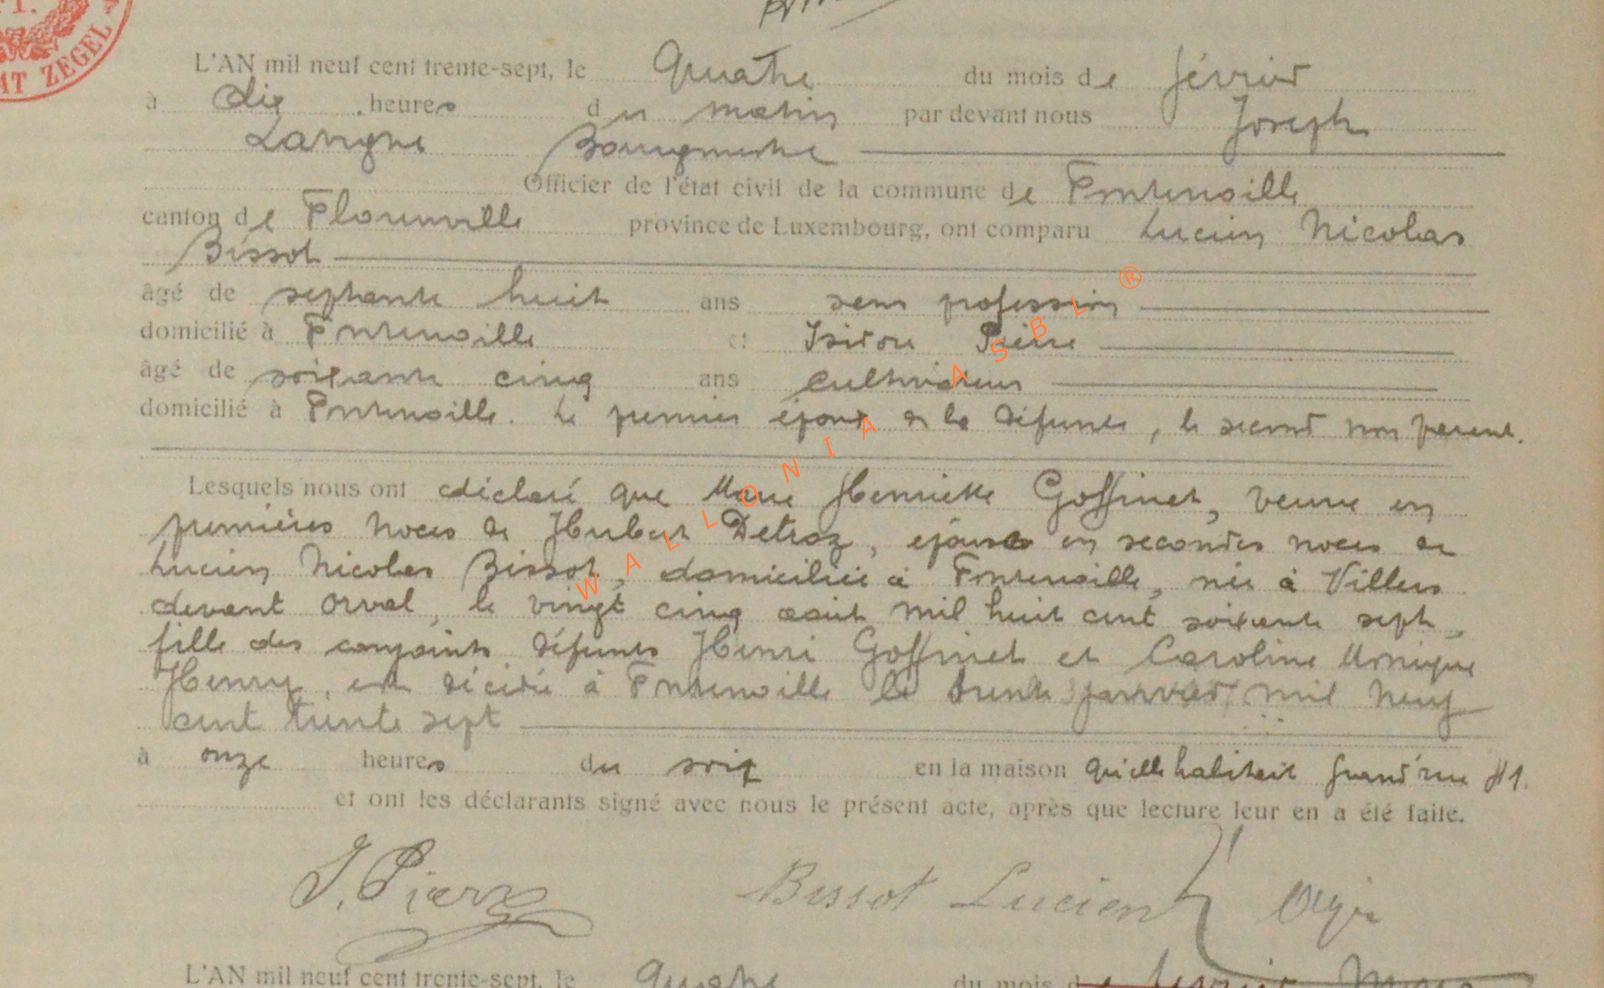 AT ZEGEL
L'AN mil neuf cent trente-sept, le Quatre du mois de février
à dix heures du matin par devant nous Joseph
Lavigne Bourgmestre
Officier de l'état civil de la commune de Fontenoille
canton de Florenville province de Luxembourg, ont comparu Lucien Nicolas
Bissot
âgé de septante huit ans sans profession
domicilié à Fontenoille et Isidore Pierre
âgé de soixante cinq ans cultivateur
domicilié à Fontenoille. Le premier époux de la défunte, le second non parent.
Lesquels nous ont déclaré que Marie Henriette Goffinet, veuve en
premières noces de Hubert Detroz, épouse en secondes noces de
Lucien Nicolas Bissot, domiciliée à Fontenoille, née à Villers
devant Orval, le vingt cinq août mil huit cent soixante sept,
fille des conjoints défunts Henri Goffinet et Caroline Monique
Henry, est décédée à Fontenoille le trente janvier mil neuf
cent trente sept
à onze heures du soir en la maison qu'elle habitait Grand'rue 41.
et ont les déclarants signé avec nous le présent acte, après que lecture leur en a été faite.
J. Pierre
Bissot Lucien
L'AN mil neuf cent trente-sept, le Quatre du mois de février
WALLONIA ASBL ®